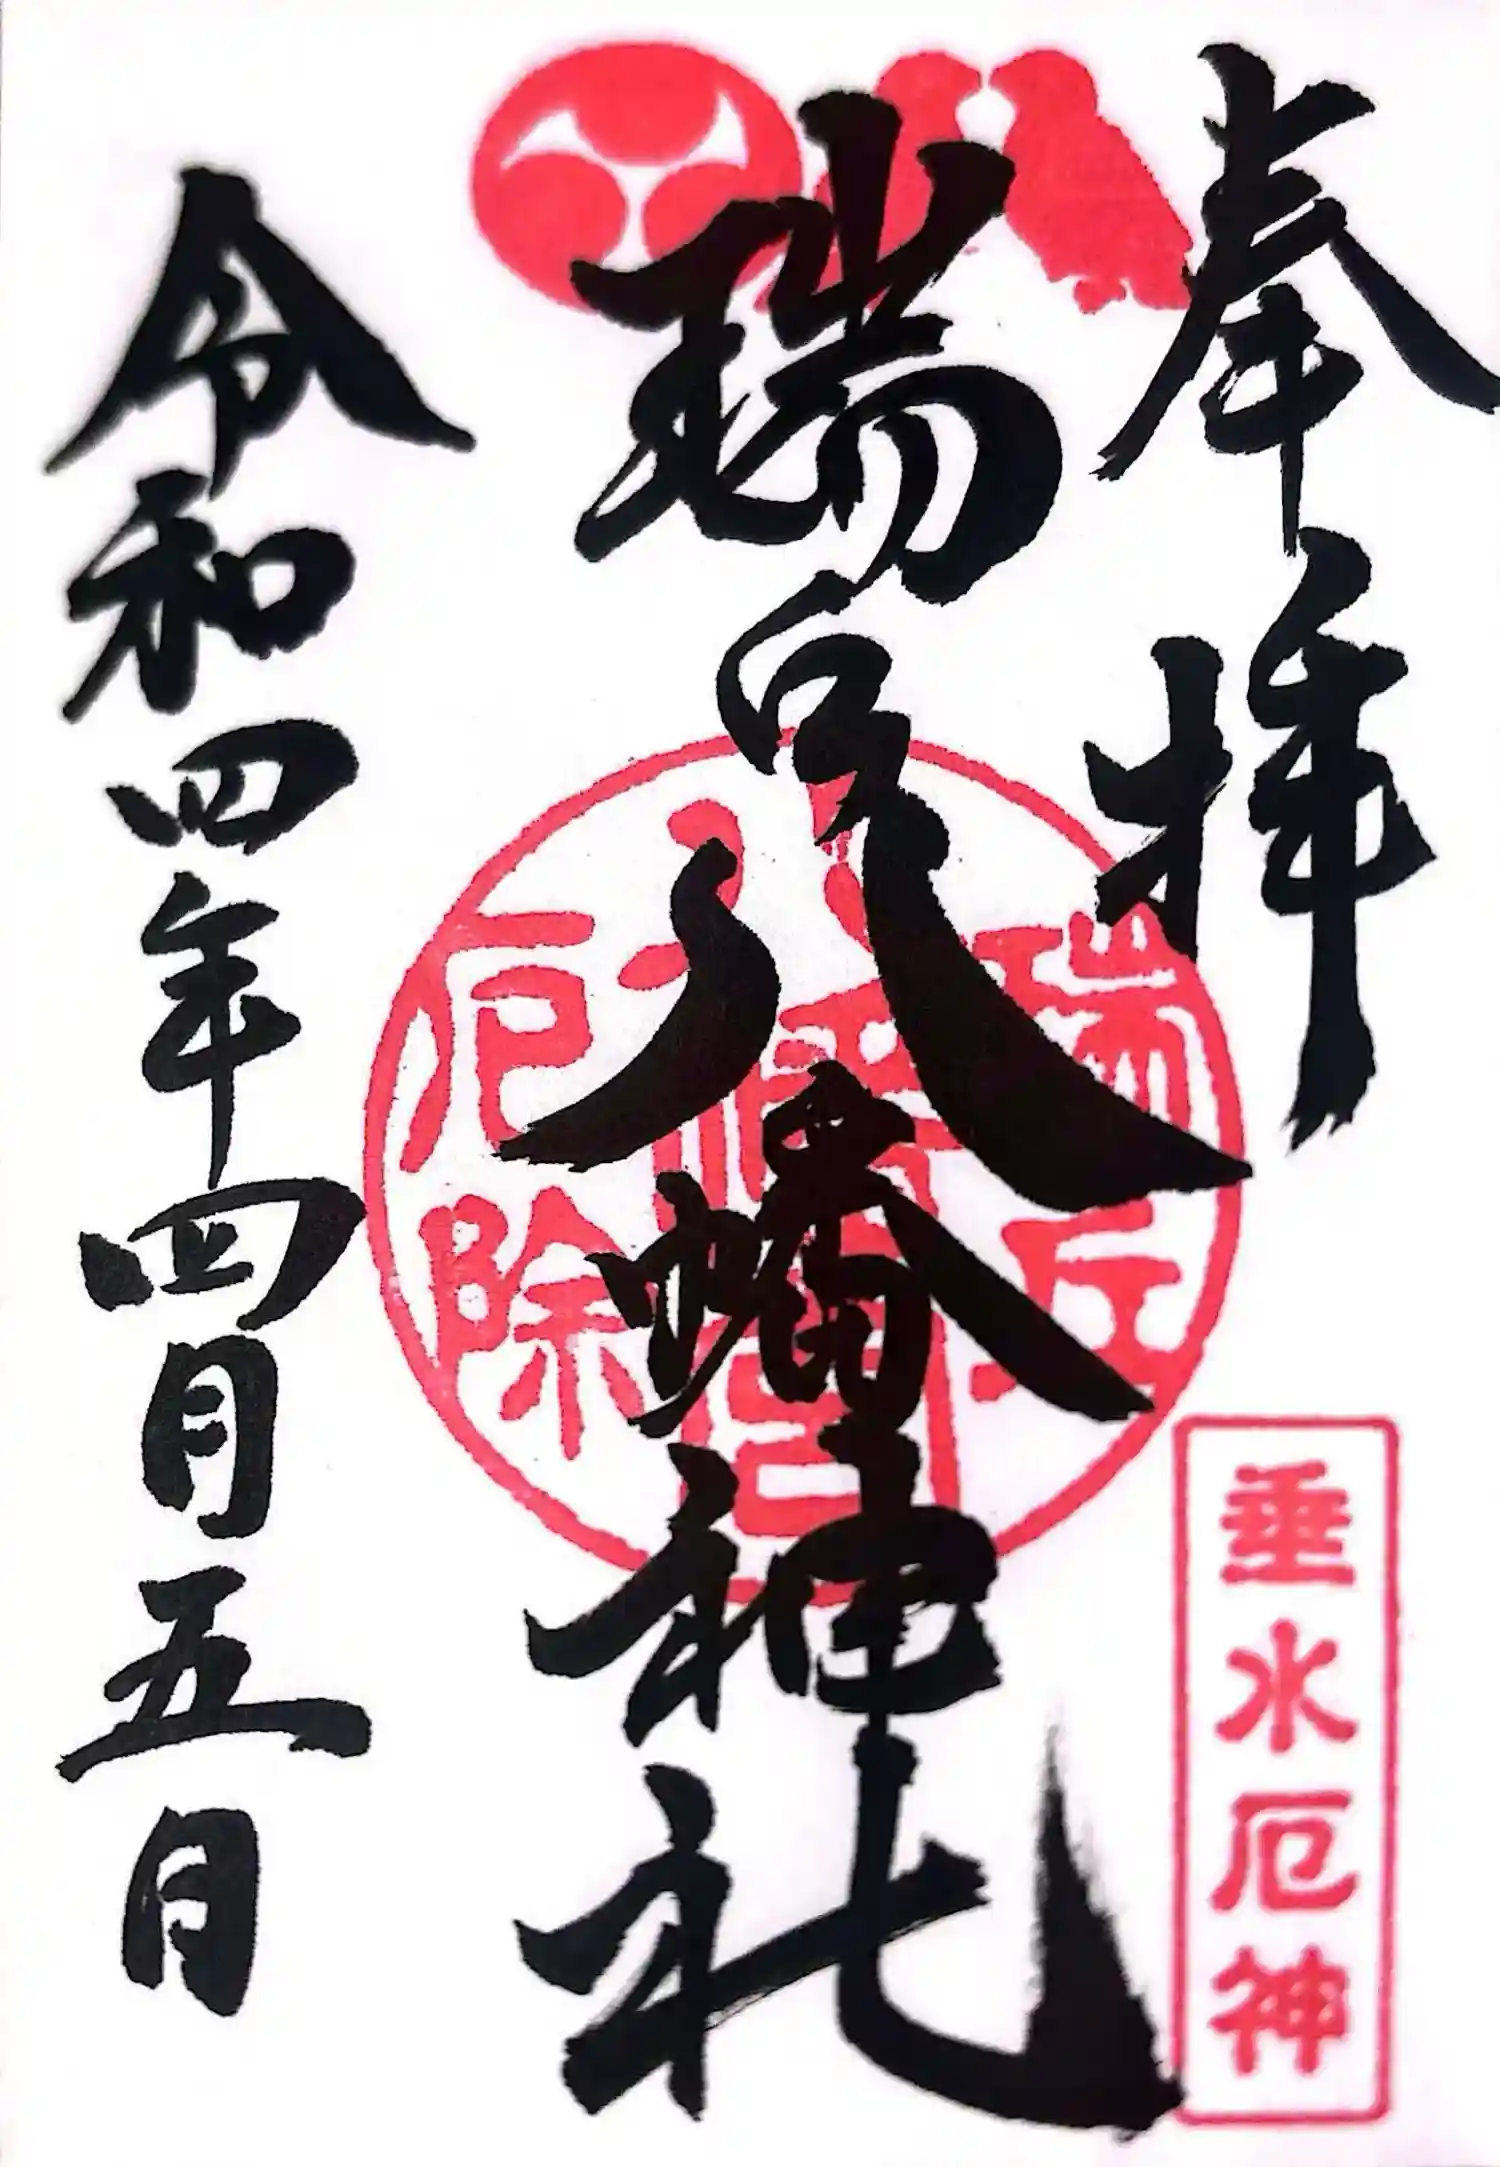 奉拝
垂水厄神
瑞丘八幡神社
瑞丘
八幡宮
厄除
令和四年四月五日